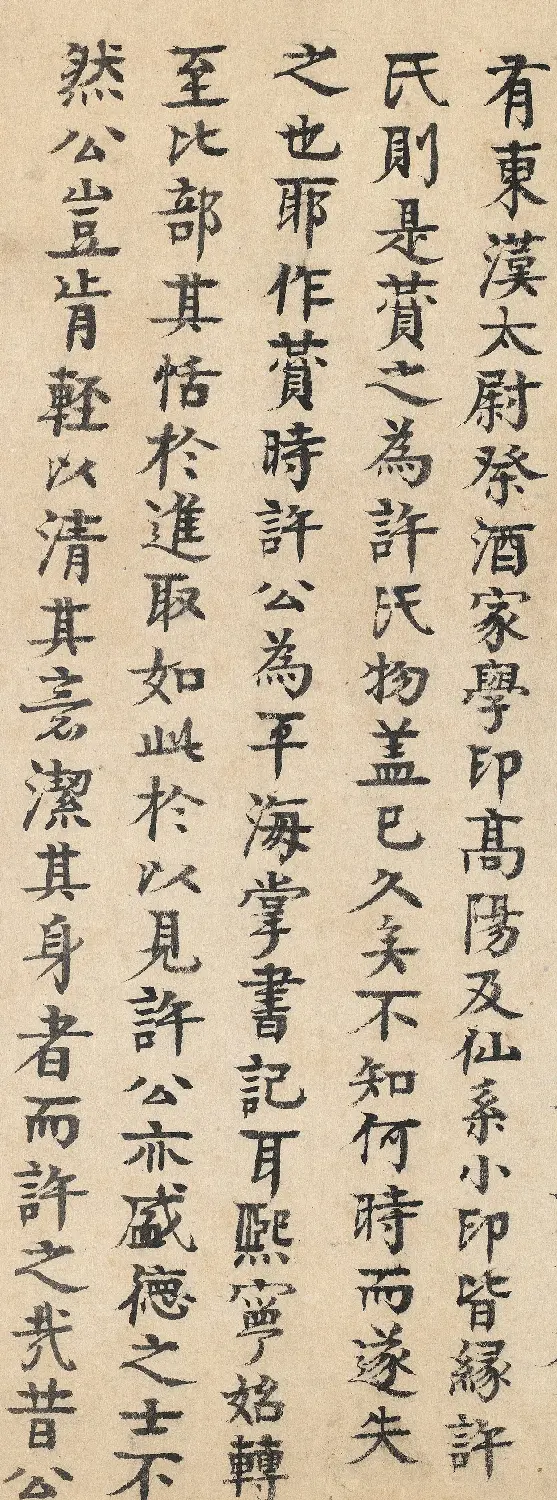 有東漢太尉祭酒家學印高陽及仙系小印皆緣許
氏則是蕒之為許氏物盖已久矣不知何時而遂失
之也耶作蕒時許公為平海掌書記耳熙寧始轉
至比部其恬於進取如此於以見許公亦盛德之士不
然公豈肯輕以清其意潔其身者而許之㢤昔公